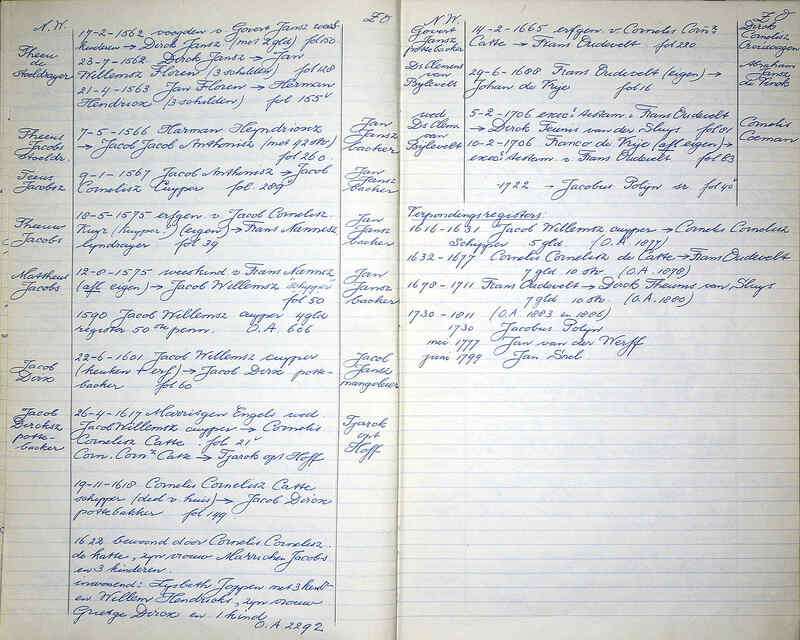 N.W.
Z.O
17-2-1562 voogden v Govert Jansz wees
kinderen → Dirck Jansz (met 2 gld) fol 50
Theeu
de
Stoeldrayer
23-7-1562 Dirck Jansz → Jan
Willemsz Floren (3 schilden) fol 128
21-4-1563 Jan Floren → Herman
Hendricx (3 schilden) fol 155v
Theeus
Jacobs
stoeldr.
7-5-1566 Harman Heyndricxz
→ Jacob Jacob Anthonisz (met 42 str)
fol 260
Jan
Jansz
backer
Teeus
Jacobsz
9-1-1567 Jacob Anthonisz → Jacob
Cornelisz Cuyper fol 289v
Jan
Jansz
backer
Theeuw
Jacobs
10-5-1575 erfgen v. Jacob Cornelisz
Kuyr (kuyper?) (eigen) → Frans Nannesz
lyndrayer fol 39
Jan
Jansz
backer
Mattheus
Jacobs
12-8-1575 weeskind v Frans Nannesz
(afl eigen) → Jacob Willemsz schipper
fol 50
Jan
Jansz
backer
1590 Jacob Willemsz cuyper 4 gld
register 50ste penn. O.A 606
Jacob
Dircx
22-6-1601 Jacob Willemsz cuyper
(keuken + erf) → Jacob Dircx potte-
backer fol 60
Jacob
Jansz
mangeleur
Jacob
Dircksz
potte-
backer
26-4-1617 Marritgen Engels wed.
Jacob Willemsz cuyper → Cornelis
Cornelisz Catte fol 21v
Corn. Cornsz Catte → Tjarck opt Hoff
Tjarck
opt
Hoff
19-11-1618 Cornelis Cornelisz Catte
schipper (deel v huis) → Jacob Dircx
pottebakker fol 149
1622 bewoond door Cornelis Cornelisz
de Katte, zyn vrouw Marrichen Jacobs
en 3 kinderen.
inwonend: Lysbeth Joppen met 3 kindn
en Willem Hendricks, zyn vrouw
Grietge Dircx en 1 kind
O.A 2292
N.W.
Z.O
Govert
Jansz
pottebacker
14-2-1665 erfgen. v. Cornelis Cornsz
Catte → Frans Oudevelt fol 220
Dirck
Cornelisz
Ouwewagen
Ds Clemens
van
Bylevelt
29-6-1688 Frans Oudevelt (eigen) →
Johan de Vrije fol 16
Abraham
Jansz
de Vinck
wed
Ds Clem
van
Bylevelt
5-2-1706 execr testam. v Frans Oudevelt
→ Dirck Teunis van der Sluys fol 81
10-2-1706 Franco de Vrije (afl eigen) →
execr testam v Frans Oudevelt fol 83
Cornelis
Coeman
1722 → Jacobus Polyn sr fol 40v
Verpondingsregisters
1616-1631 Jacob Willemsz cuyper → Cornelis Cornelisz
Schipper 5 gld (O.A. 1877)
1632-1677 Cornelis Cornelisz de Catte → Frans Oudevelt
7 gld 10 str. (O.A. 1878)
1678-1711 Frans Oudevelt → Dirck Theunis van Sluys
7 gld 10 str. (O.A. 1880)
1730-1811 (O.A. 1883 en 1886)
1730 Jacobus Polyn
mei 1777 Jan van der Werff
juni 1799 Jan Snel